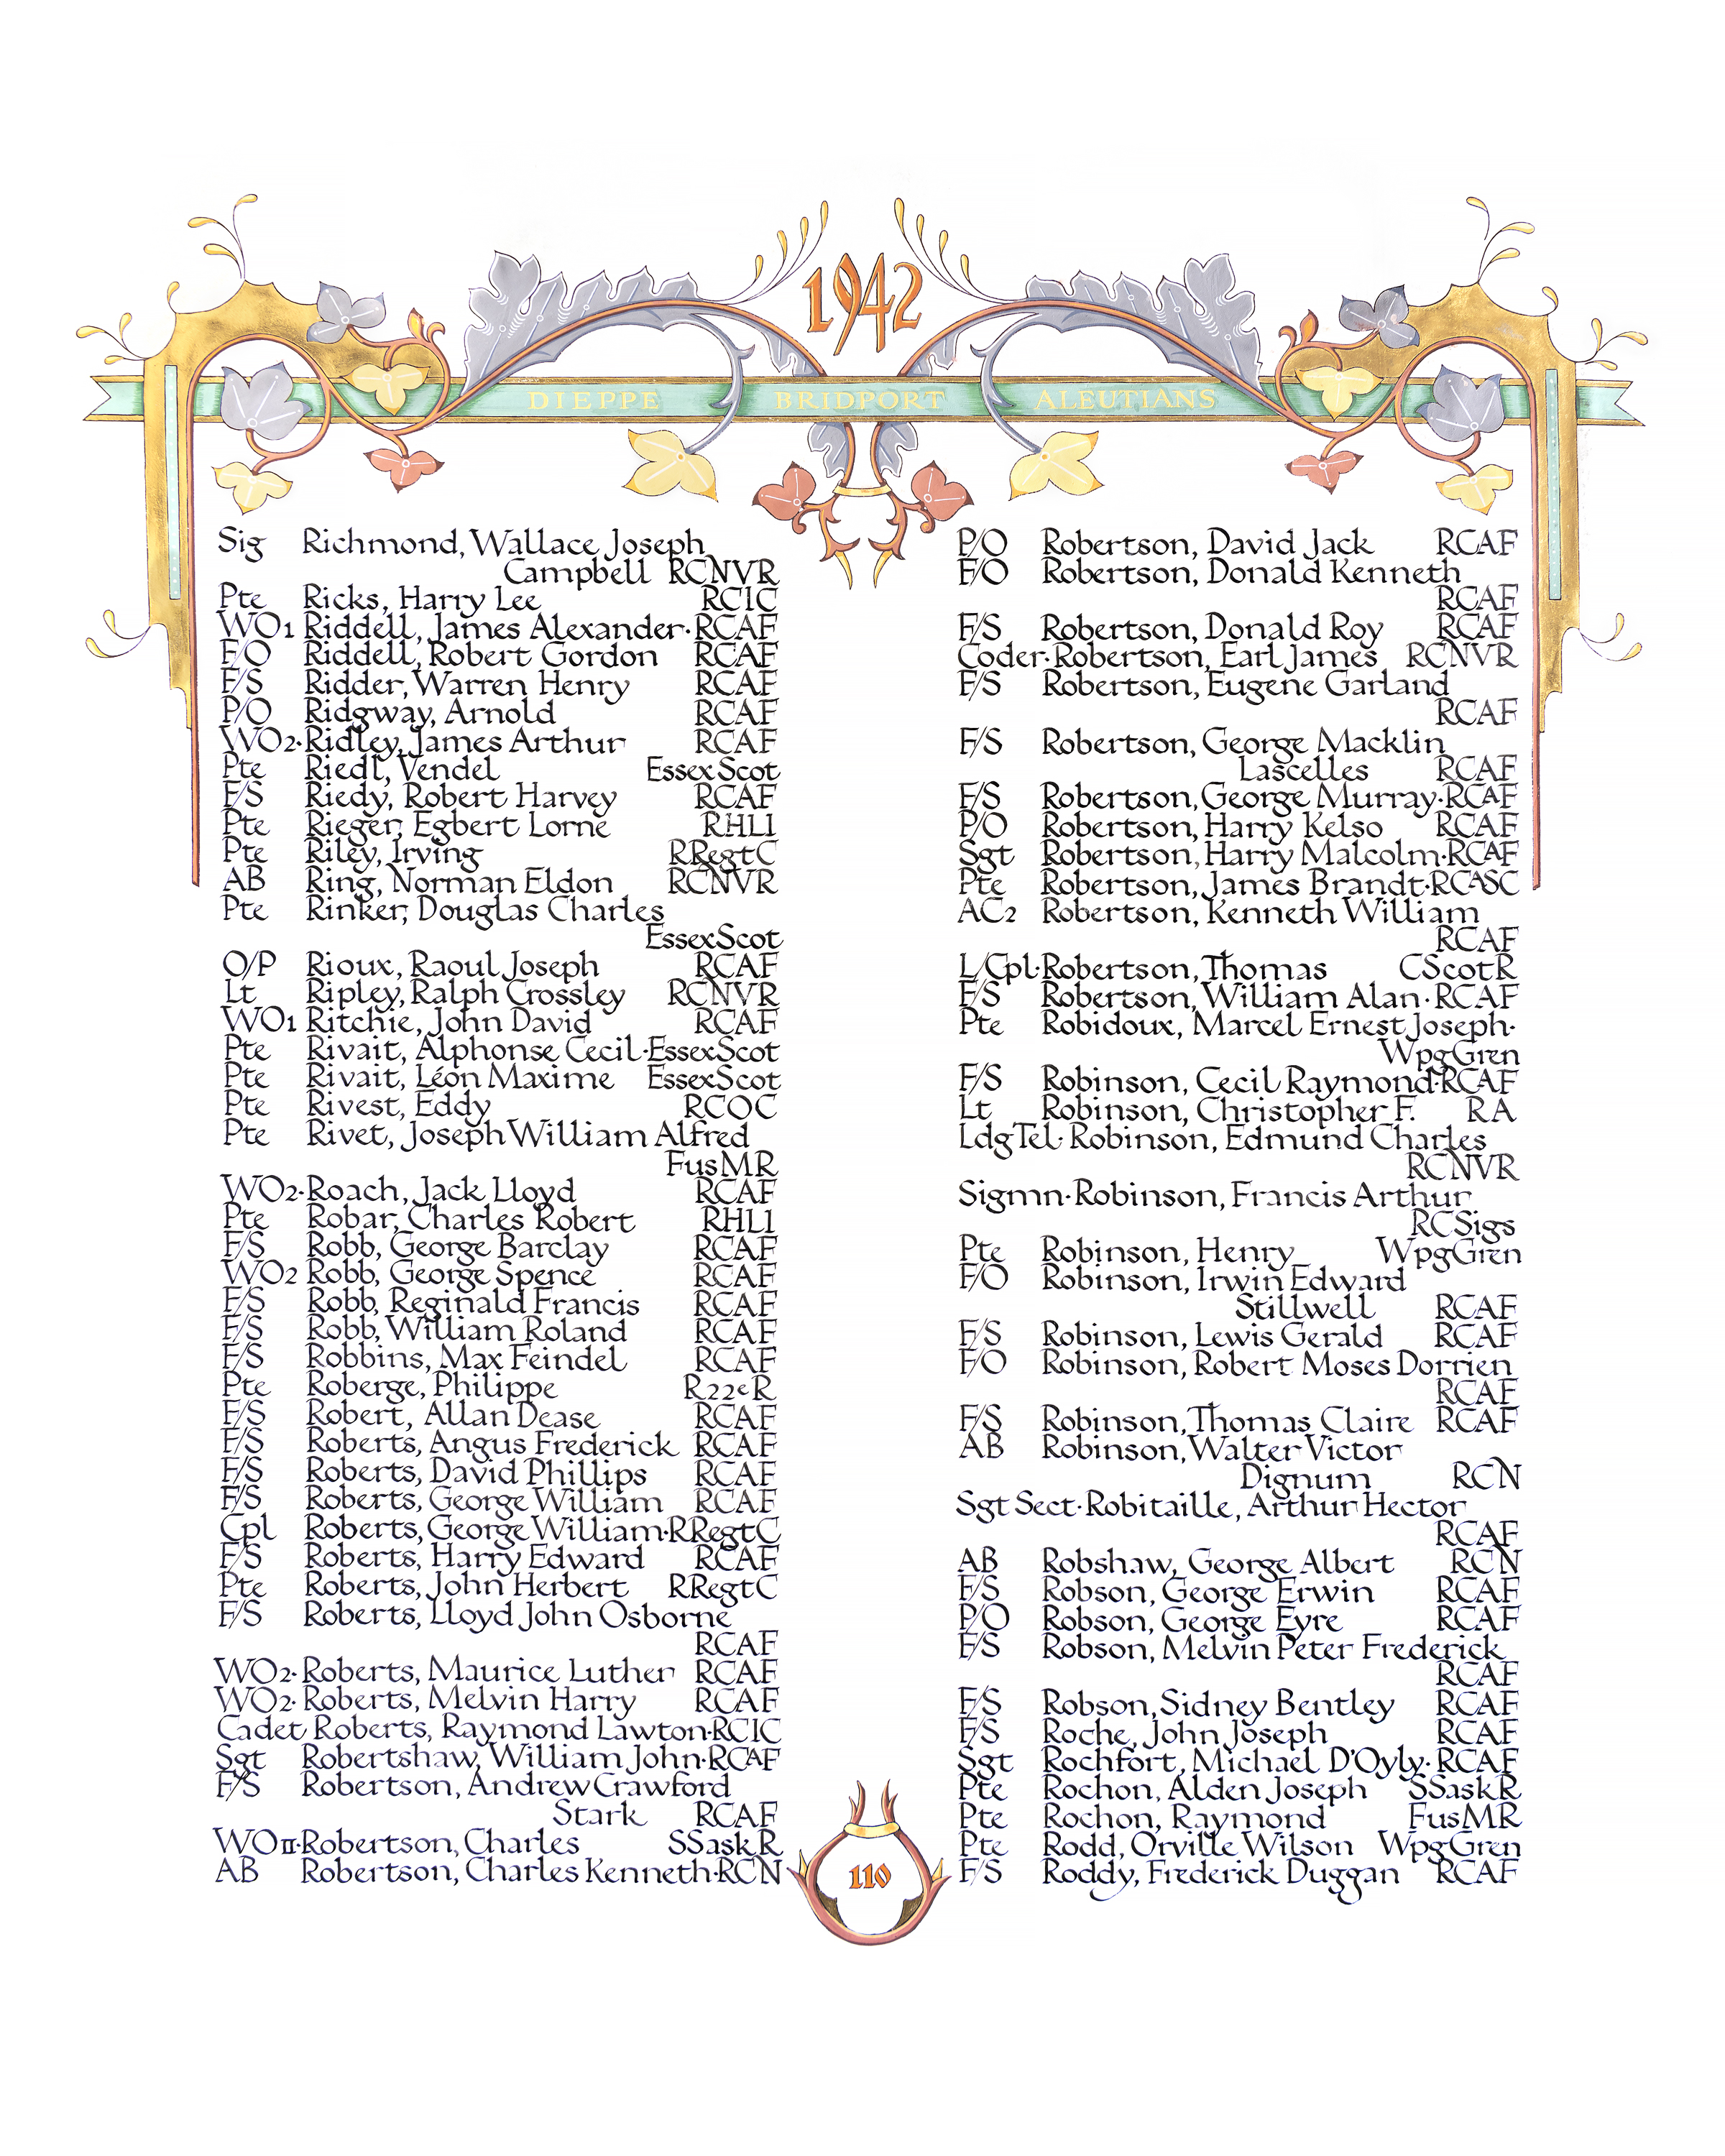 1942
DIEPPE BRIDPORT ALEUTIANS
Sig Richmond, Wallace Joseph
Campbell RCNVR
Pte Ricks, Harry Lee RCIC
WO1 Riddell, James Alexander·RCAF
F/O Riddell, Robert Gordon RCAF
F/S Ridder, Warren Henry RCAF
P/O Ridgway, Arnold RCAF
WO2·Ridley, James Arthur RCAF
Pte Riedl, Vendel EssexScot
F/S Riedy, Robert Harvey RCAF
Pte Rieger, Egbert Lorne RHLI
Pte Riley, Irving RRegtC
AB Ring, Norman Eldon RCNVR
Pte Rinker, Douglas Charles
EssexScot
O/P Rioux, Raoul Joseph RCAF
Lt Ripley, Ralph Crossley RCNVR
WO1 Ritchie, John David RCAF
Pte Rivait, Alphonse Cecil·EssexScot
Pte Rivait, Léon Maxime EssexScot
Pte Rivest, Eddy RCOC
Pte Rivet, Joseph William Alfred
FusMR
WO2·Roach, Jack Lloyd RCAF
Pte Robar, Charles Robert RHLI
F/S Robb, George Barclay RCAF
WO2 Robb, George Spence RCAF
F/S Robb, Reginald Francis RCAF
F/S Robb, William Roland RCAF
F/S Robbins, Max Feindel RCAF
Pte Roberge, Philippe R22eR
F/S Robert, Allan Dease RCAF
F/S Roberts, Angus Frederick RCAF
F/S Roberts, David Phillips RCAF
F/S Roberts, George William RCAF
Cpl Roberts, George William·RRegtC
F/S Roberts, Harry Edward RCAF
Pte Roberts, John Herbert RRegtC
F/S Roberts, Lloyd John Osborne
RCAF
WO2·Roberts, Maurice Luther RCAF
WO2·Roberts, Melvin Harry RCAF
Cadet Roberts, Raymond Lawton·RCIC
Sgt Robertshaw, William John·RCAF
F/S Robertson, Andrew Crawford
Stark RCAF
WOII·Robertson, Charles SSaskR
AB Robertson, Charles Kenneth·RCN
P/O Robertson, David Jack RCAF
F/O Robertson, Donald Kenneth
RCAF
F/S Robertson, Donald Roy RCAF
Coder·Robertson, Earl James RCNVR
F/S Robertson, Eugene Garland
RCAF
F/S Robertson, George Macklin
Lascelles RCAF
F/S Robertson, George Murray·RCAF
P/O Robertson, Harry Kelso RCAF
Sgt Robertson, Harry Malcolm·RCAF
Pte Robertson, James Brandt·RCASC
AC2 Robertson, Kenneth William
RCAF
L/Cpl·Robertson, Thomas CScotR
F/S Robertson, William Alan·RCAF
Pte Robidoux, Marcel Ernest Joseph·
WpgGren
F/S Robinson, Cecil Raymond·RCAF
Lt Robinson, Christopher F. RA
LdgTel·Robinson, Edmund Charles
RCNVR
Sigmn·Robinson, Francis Arthur
RCSigs
Pte Robinson, Henry WpgGren
F/O Robinson, Irwin Edward
Stillwell RCAF
F/S Robinson, Lewis Gerald RCAF
F/O Robinson, Robert Moses Dorrien
RCAF
F/S Robinson, Thomas Claire RCAF
AB Robinson, Walter Victor
Dignum RCN
Sgt Sect·Robitaille, Arthur Hector
RCAF
AB Robshaw, George Albert RCN
F/S Robson, George Erwin RCAF
P/O Robson, George Eyre RCAF
F/S Robson, Melvin Peter Frederick
RCAF
F/S Robson, Sidney Bentley RCAF
F/S Roche, John Joseph RCAF
Sgt Rochfort, Michael D'Oyly·RCAF
Pte Rochon, Alden Joseph SSaskR
Pte Rochon, Raymond FusMR
Pte Rodd, Orville Wilson WpgGren
F/S Roddy, Frederick Duggan RCAF
110